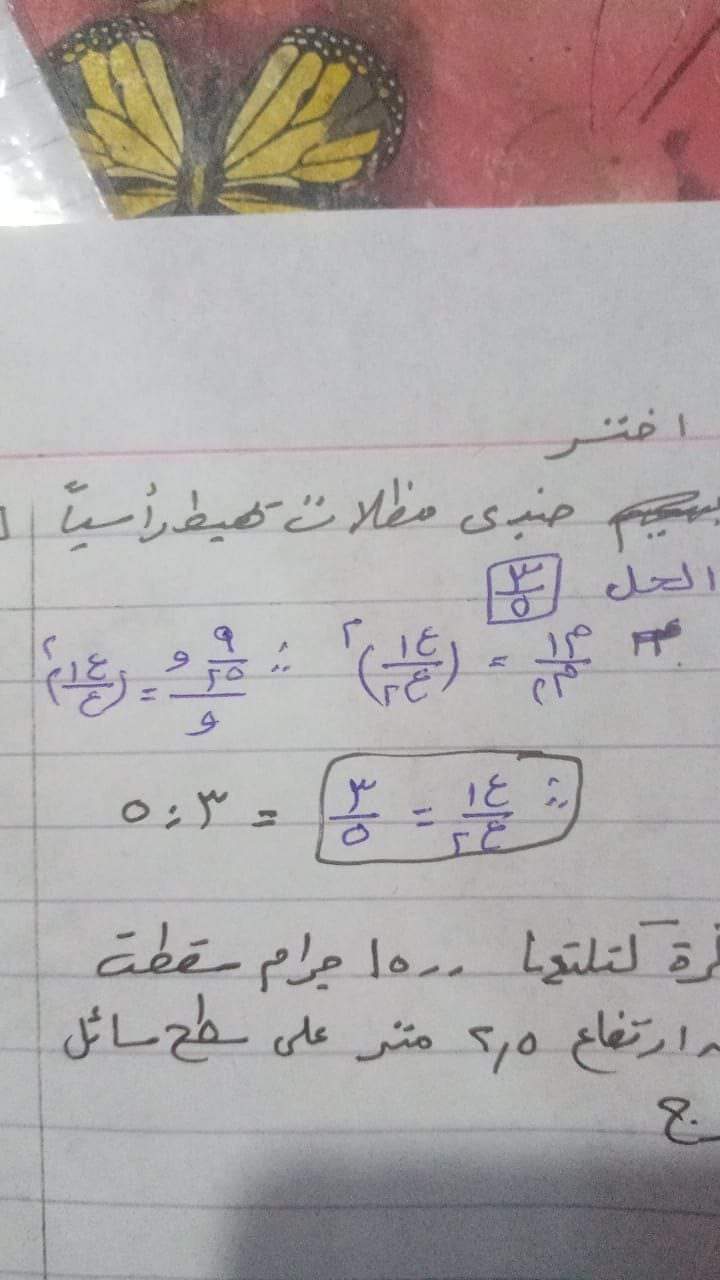 اختر
جندى مظلات تهبط رأسياً
الحل ٣/٥
م١/م٢ = (ع١/ع٢)٢ ∴ ٩/٢٥ و/و = (ع١/ع)٢
∴ ع١/ع٢ = ٣/٥ = ٣:٥
كرة كتلتها ١٥٠٠ جرام سقطت
ارتفاع ٢,٥ متر على سطح سائل